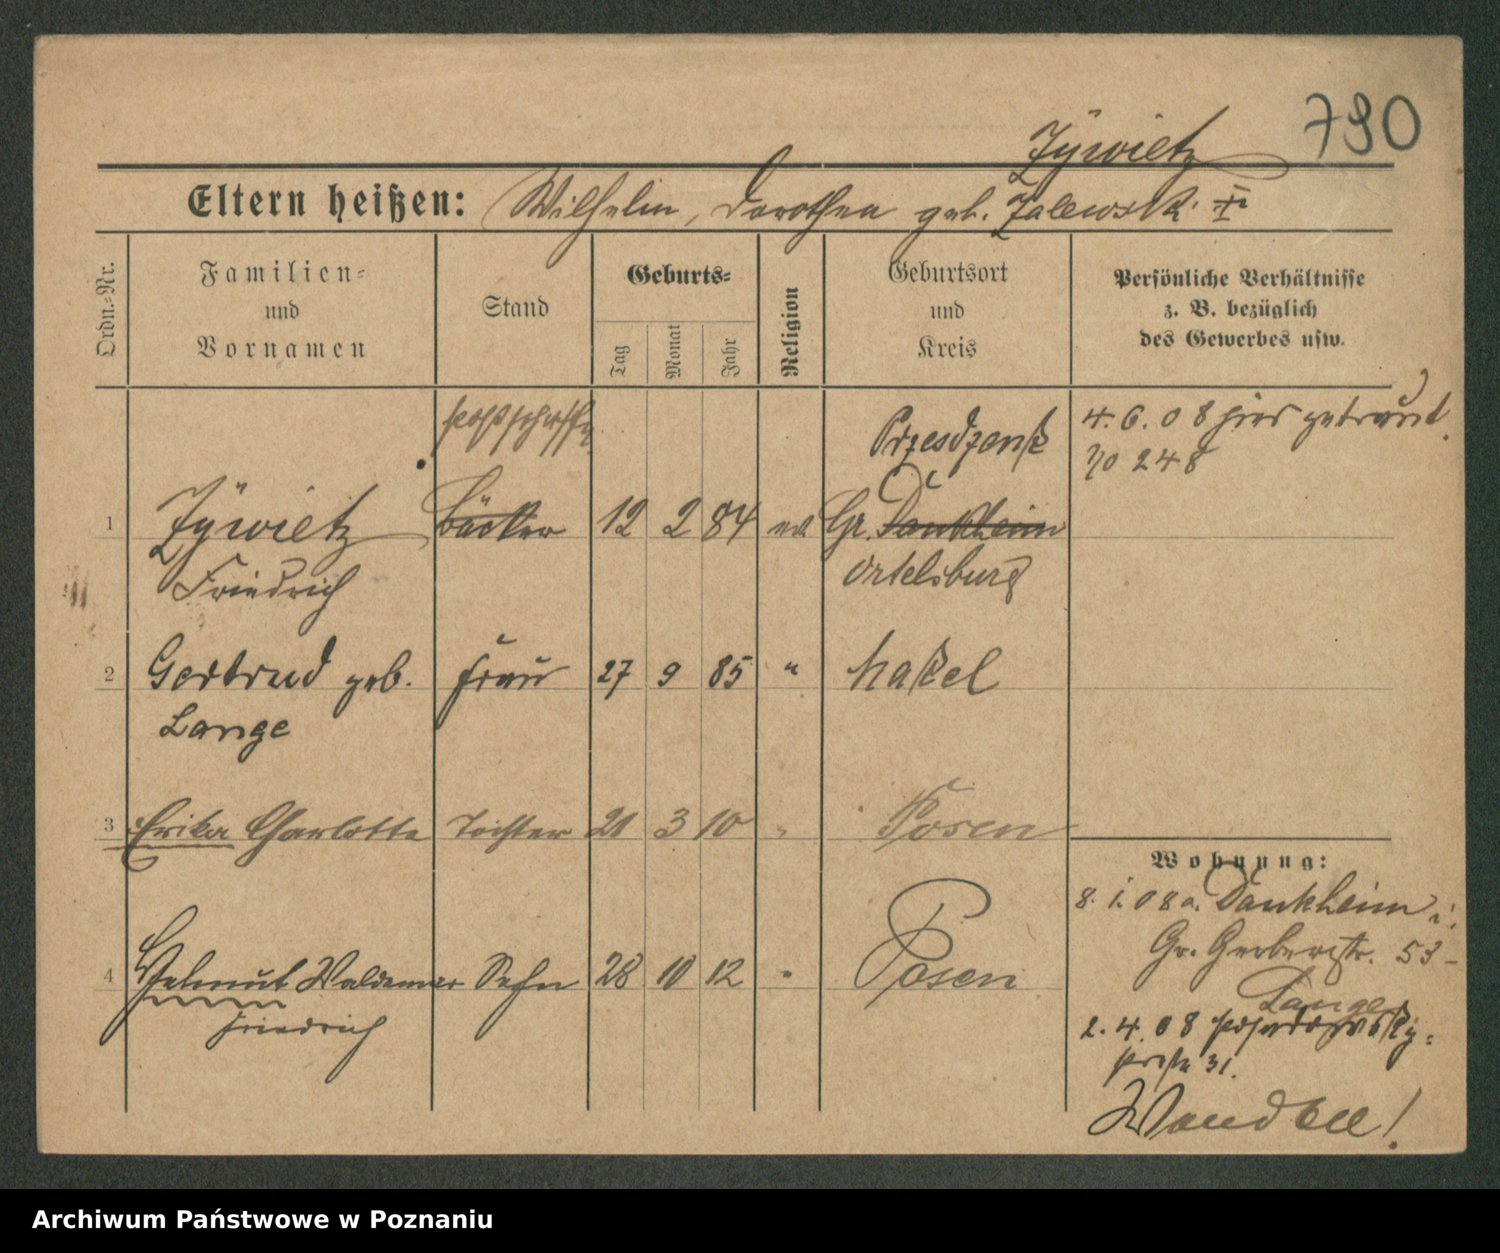 790
Zÿwietz
Eltern heißen: Wilhelm, Dorothea geb. Zalewsk. I
Ordn.=Nr.
Familien=
und
Vornamen
Stand
Geburts=
Tag
Monat
Jahr
Religion
Geburtsort
und
Kreis
Persönliche Verhältnisse
z. B. bezüglich
des Gewerbes usw.
4. 6. 08 hier getraut.
No 248
1 Zÿwietz Bäcker 12 2 84 ev. Gr. Dankheim
Friedrich Ortelsburg
2 Gertrud geb. Frau 27 9 85 " Nakel
Lange
3 Erika Charlotte Tochter 21 3 10 " Posen
4 Helmut Waldemar Sohn 28 10 12 " Posen
Friedrich
Wohnung:
8. 1. 08 a. Dankheim
Gr. Gerberstr. 53
Lange
2. 4. 08
31.
Wenden!
Archiwum Państwowe w Poznaniu